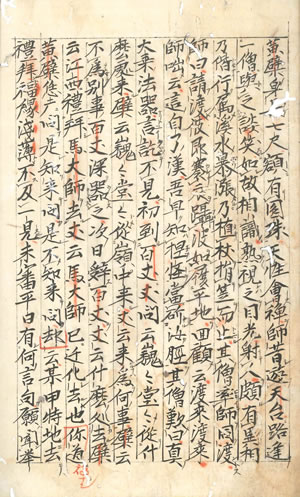 黃檗身七尺額有圓珠天性會禪師昔遊天台路逢
一僧與之談笑如故相識熟視之目光射人頗有異相
乃偕行屬溪水暴漲乃植杖捐笠而止其僧率師同渡
師曰請渡彼即褰衣躡波如履平地回顧云渡來渡來
師咄云這自了漢吾早知捏怪當斫汝脛其僧歎曰真
大乗法器言訖不見初到百丈丈問云巍々堂々從什
麽處來檗云巍々堂々從嶺中來丈云來為何事檗云
不為別事百丈深器之次日辭百丈丈云什麽處去檗
云江西禮拜馬大師去丈云馬大師已迁化去也你道
黃檗恁广問是知來問是不知來問却云某甲特地去
禮拜福緣淺薄不及一見未審平日有何言句願聞舉